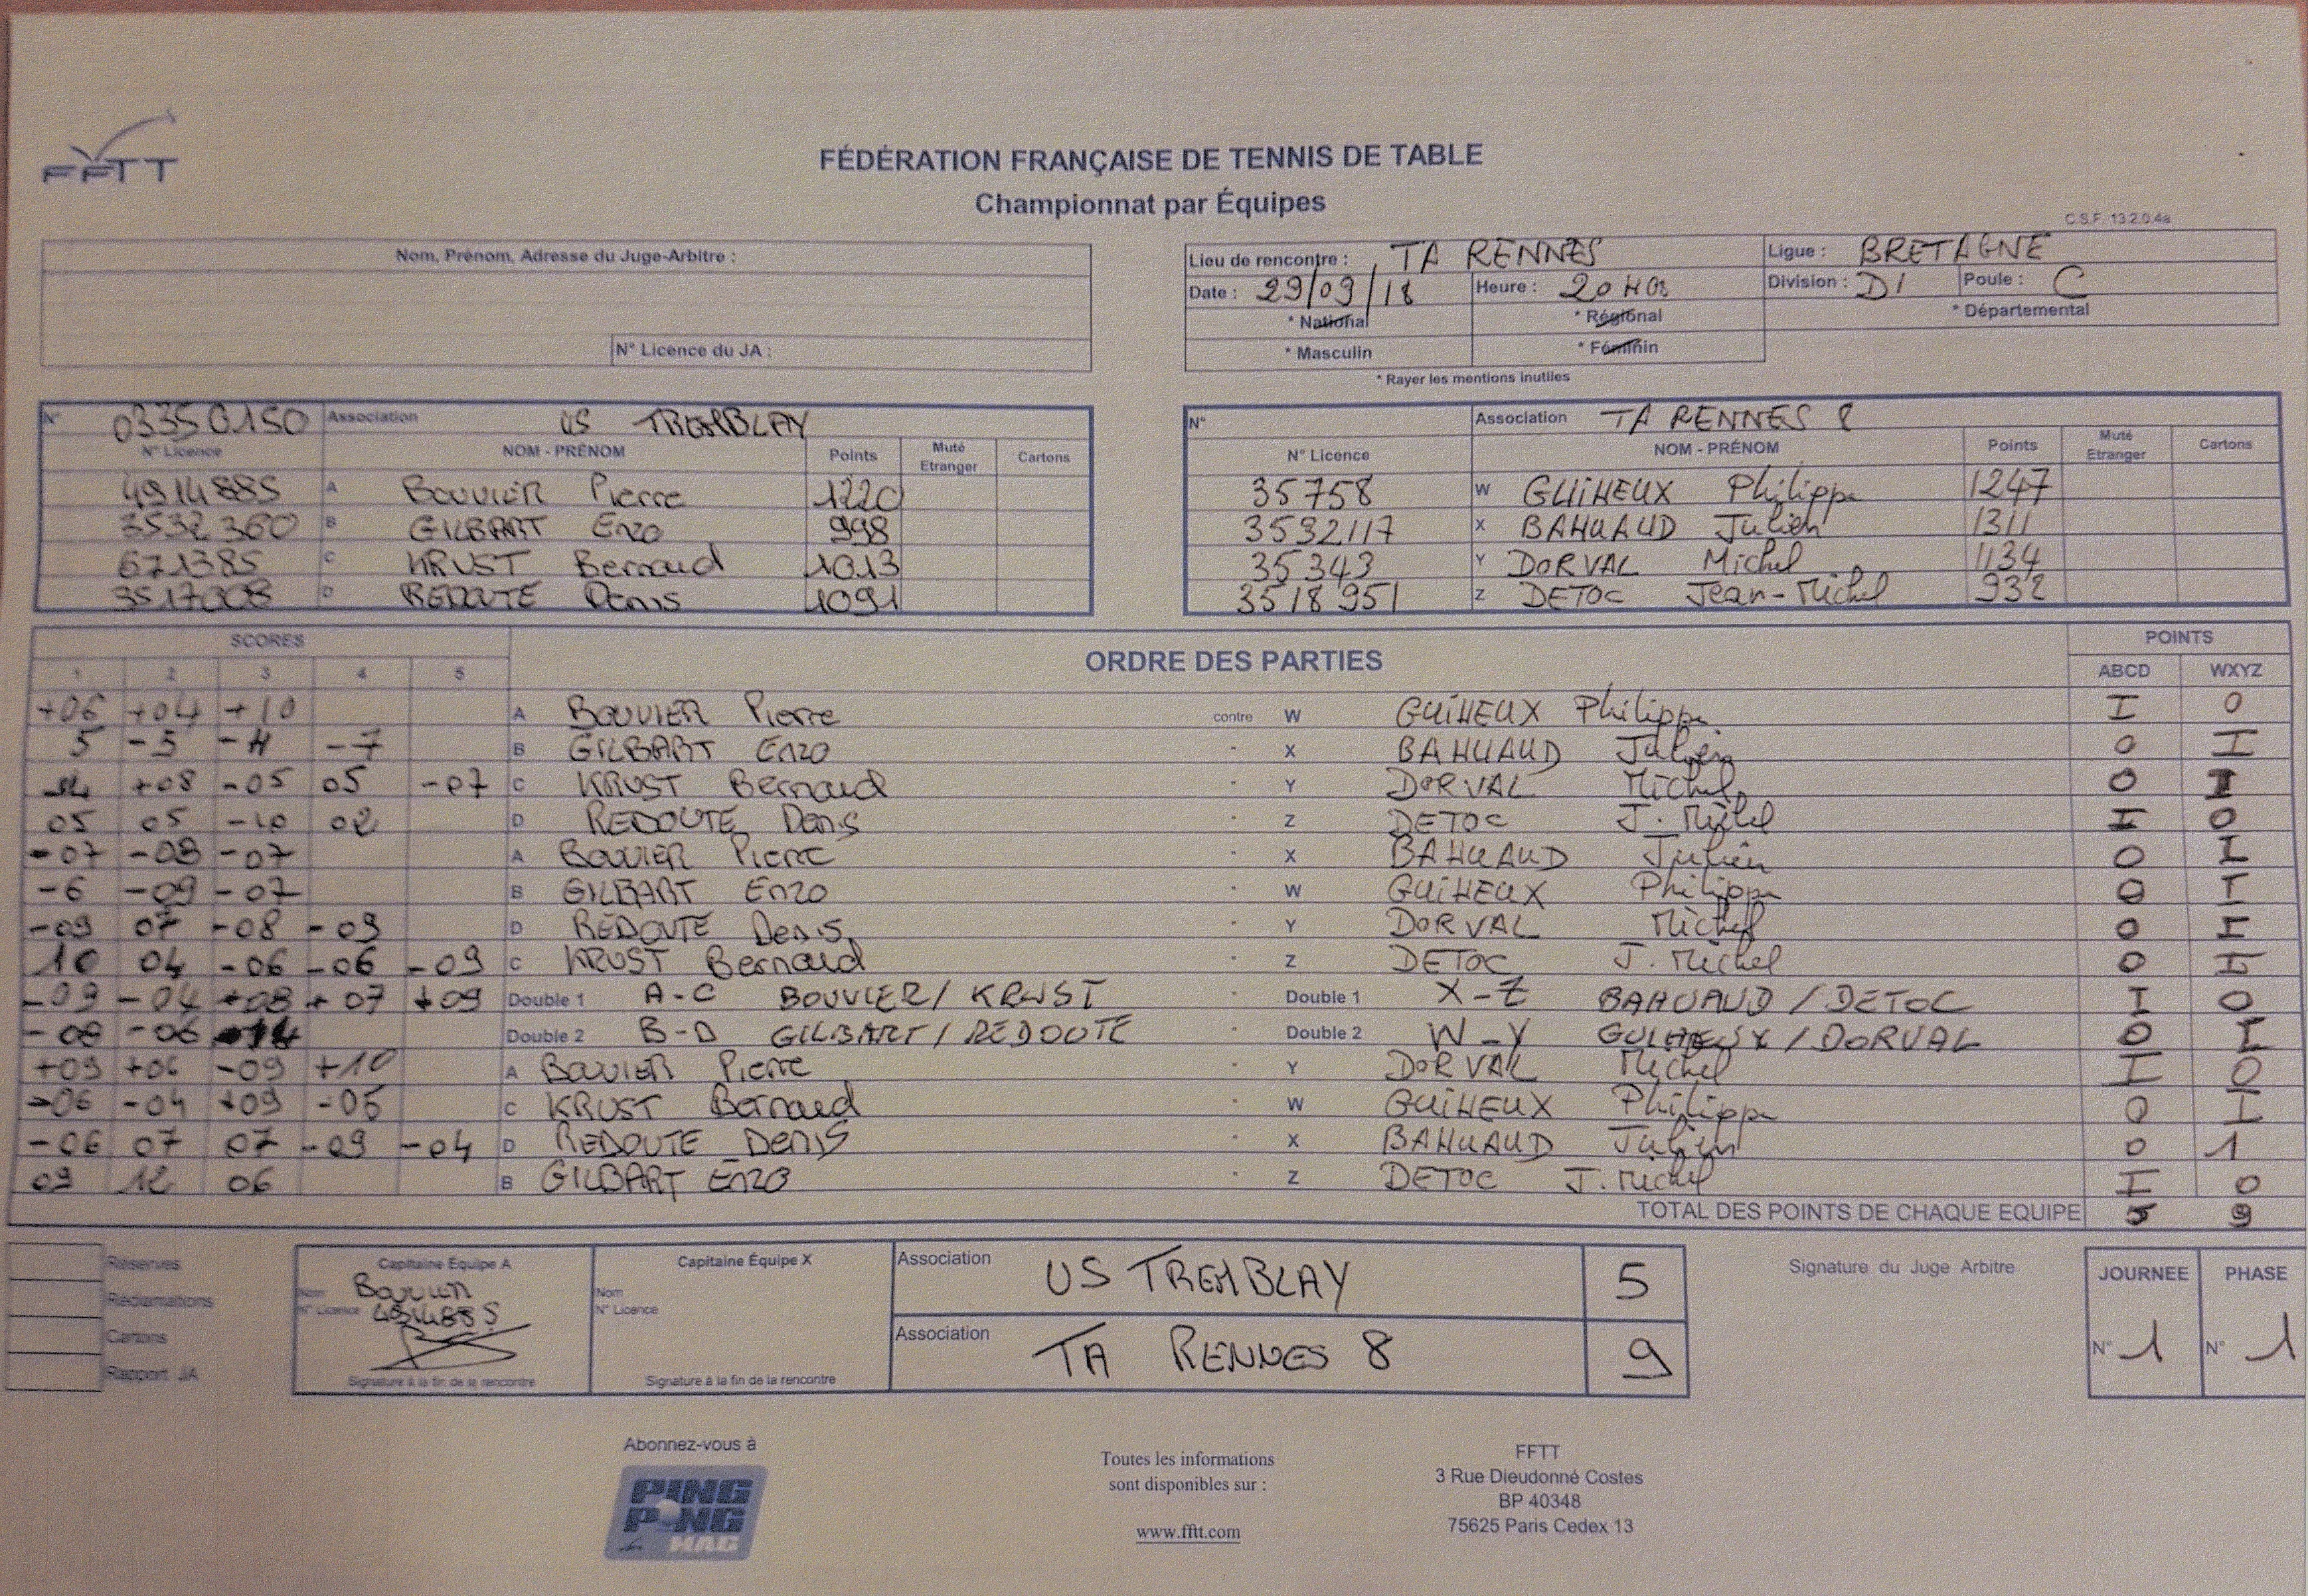 FFTT
FÉDÉRATION FRANÇAISE DE TENNIS DE TABLE
Championnat par Équipes
C.S.F. 13.2.0.4a
Nom, Prénom, Adresse du Juge-Arbitre :
N° Licence du JA :
Lieu de rencontre : TA RENNES Ligue : BRETAGNE
Date : 29/09/18 Heure : 20H03 Division : D1 Poule : C
* National * Régional * Départemental
* Masculin * Féminin
* Rayer les mentions inutiles
N° 03350150 Association US TREMBLAY
N° Licence NOM - PRÉNOM Points Muté Etranger Cartons
4914885 A BOUVIER Pierre 1220
3532360 B GILBART Enzo 998
671385 C KRUST Bernard 1013
3517008 D REDOUTE Denis 1091
N° Association TA RENNES 8
N° Licence NOM - PRÉNOM Points Muté Etranger Cartons
35758 W GUIHEUX Philippe 1247
3532117 X BAHUAUD Julien 1311
35343 Y DORVAL Michel 1134
3518951 Z DETOC Jean-Michel 932
SCORES ORDRE DES PARTIES POINTS
1 2 3 4 5 ABCD WXYZ
+06 +04 +10 A BOUVIER Pierre contre W GUIHEUX Philippe I 0
5 -5 -4 -7 B GILBART Enzo - X BAHUAUD Julien 0 I
+08 -05 05 -07 C KRUST Bernard Y DORVAL Michel 0 I
05 05 -10 02 D REDOUTE Denis - Z DETOC J. Michel I 0
-07 -08 -07 A BOUVIER Pierre - X BAHUAUD Julien 0 I
-6 -09 -07 B GILBART Enzo - W GUIHEUX Philippe 0 I
-09 07 -08 -09 D REDOUTE Denis - Y DORVAL Michel 0 I
10 04 -06 -06 -09 C KRUST Bernard - Z DETOC J. Michel 0 I
-09 -04 +08 +07 +09 Double 1 A-C BOUVIER/ KRUST - Double 1 X-Z BAHUAUD / DETOC I 0
-08 -06 -14 Double 2 B-D GILBART / REDOUTE - Double 2 W-Y GUIHEUX / DORVAL 0 I
+09 +06 -09 +10 A BOUVIER Pierre - Y DORVAL Michel I 0
-06 -04 +09 -06 C KRUST Bernard - W GUIHEUX Philippe 0 I
-06 07 07 -09 -04 D REDOUTE DENIS - X BAHUAUD Julien 0 1
09 12 06 B GILBART ENZO - Z DETOC J. Michel I 0
TOTAL DES POINTS DE CHAQUE EQUIPE 5 9
Réserves
Réclamations
Cartons
Rapport JA
Capitaine Équipe A
Nom BOUVIER
N° Licence 4914885
Signature à la fin de la rencontre
Capitaine Équipe X
Nom
N° Licence
Signature à la fin de la rencontre
Association US TREMBLAY 5
Association TA RENNES 8 9
Signature du Juge Arbitre
JOURNEE PHASE
N° 1 N° 1
Abonnez-vous à
PING PONG MAG
Toutes les informations
sont disponibles sur :
www.fftt.com
FFTT
3 Rue Dieudonné Costes
BP 40348
75625 Paris Cedex 13